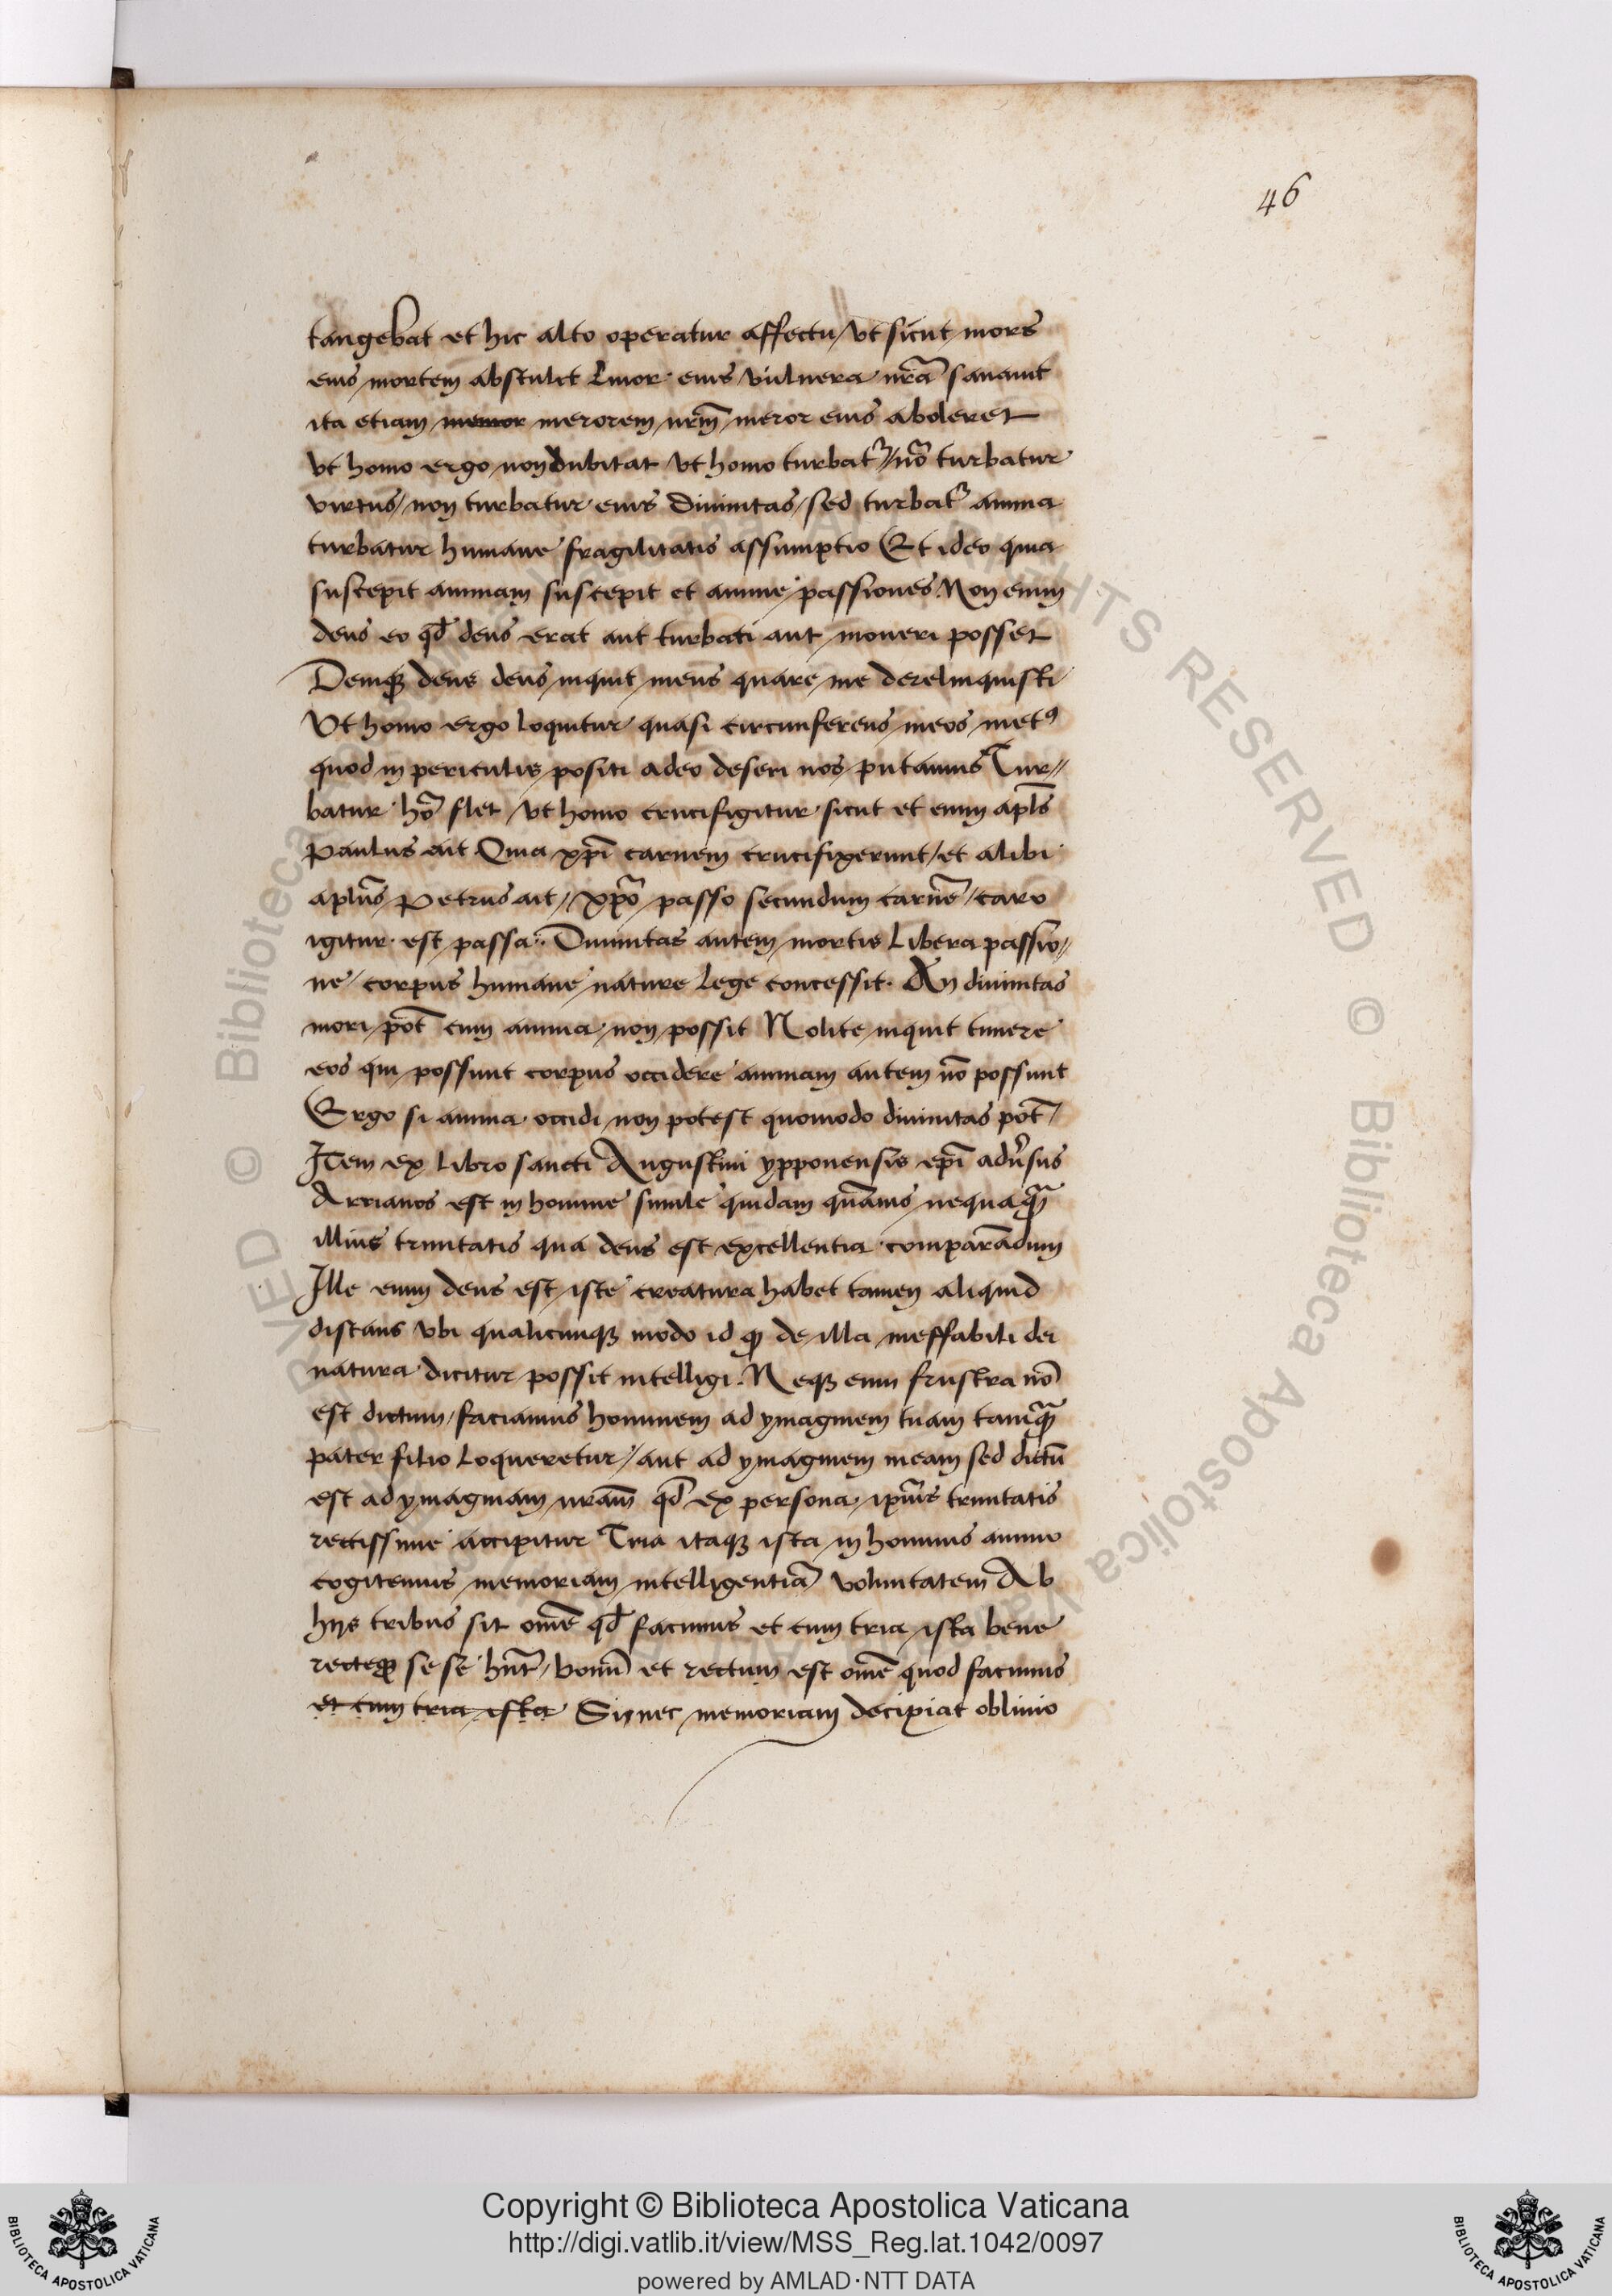 46
tangebat et hic alto operatur affectu / Vt sicut mors
eius mortem abstulit Liuor eius vulnera nr̃a sanauit
ita etiam memor merorem nrm̃ meror eius aboleret
Vt homo ergo non dubitat Vt homo turbatᷣ / nõ turbatur
virtus / non turbatur eius Diuinitas / sed turbatᷣ anima
turbatur humane fragilitatis assumptio Et ideo quia
suscepit animam suscepit et anime passiones. Non enim
deus eo qđ deus erat aut turbari aut moueri posset
Deniqꝫ deus deus inquit meus quare me derelinquisti
Vt homo ergo loquitur quasi circunferens meos metꝰ
quod in periculis positi a deo deseri nos putamus Tur//
batur hõ flet / Vt homo crucifigitur sicut et enim apl̃s
Paulus ait Quia xp̃i carnem crucifixerunt / et alibi
apl̃us Petrus ait // xp̃o passo secundum carnẽ / caro
igitur est passa. Diuinitas autem mortis Libera passio//
ne / corpus humane nature Lege concessit. An diuinitas
mori põt cum anima non possit Nolite inquit timere
eos qui possunt corpus occidere animam autem nõ possunt
Ergo si anima occidi non potest quomodo diuinitas põt /
Item ex Libro sancti Augustini ypponensis ep̃i adũsus
Arrianos est in homine simile quidam quãuis nequaqꝫ̃
illius trinitatis qua deus est excellentia comparãdum
Ille enim deus est iste creatura habet tamen aliquid
distans Vbi qualicunqꝫ modo id ꝙ de illa ineffabili dei
natura dicitur possit intelligi. Neqꝫ enim frustra nõ
est dictum / faciamus hominem ad ymaginem tuam tamqꝫ̃
pater filio Loqueretur / aut ad ymaginem meam sed dictũ
est ad ymaginam nrãm qđ ex persona ip̃ius trinitatis
rectissime accipitur Tria itaqꝫ ista in hominis animo
cogitemus memoriam intelligentiã voluntatem Ab
hijs tribus sit om̃e qđ facimus et cum tria ista bene
recteqꝫ se se hñt / bonũ et rectum est om̃e quod facimus
et cum tria ista Si nec memoriam decipiat obliuio
© Biblioteca Apostolica Vaticana
RIGHTS RESERVED © Biblioteca Apostolica
Copyright © Biblioteca Apostolica Vaticana
http://digi.vatlib.it/view/MSS_Reg.lat.1042/0097
powered by AMLAD·NTT DATA
BIBLIOTECA APOSTOLICA VATICANA
BIBLIOTECA APOSTOLICA VATICANA